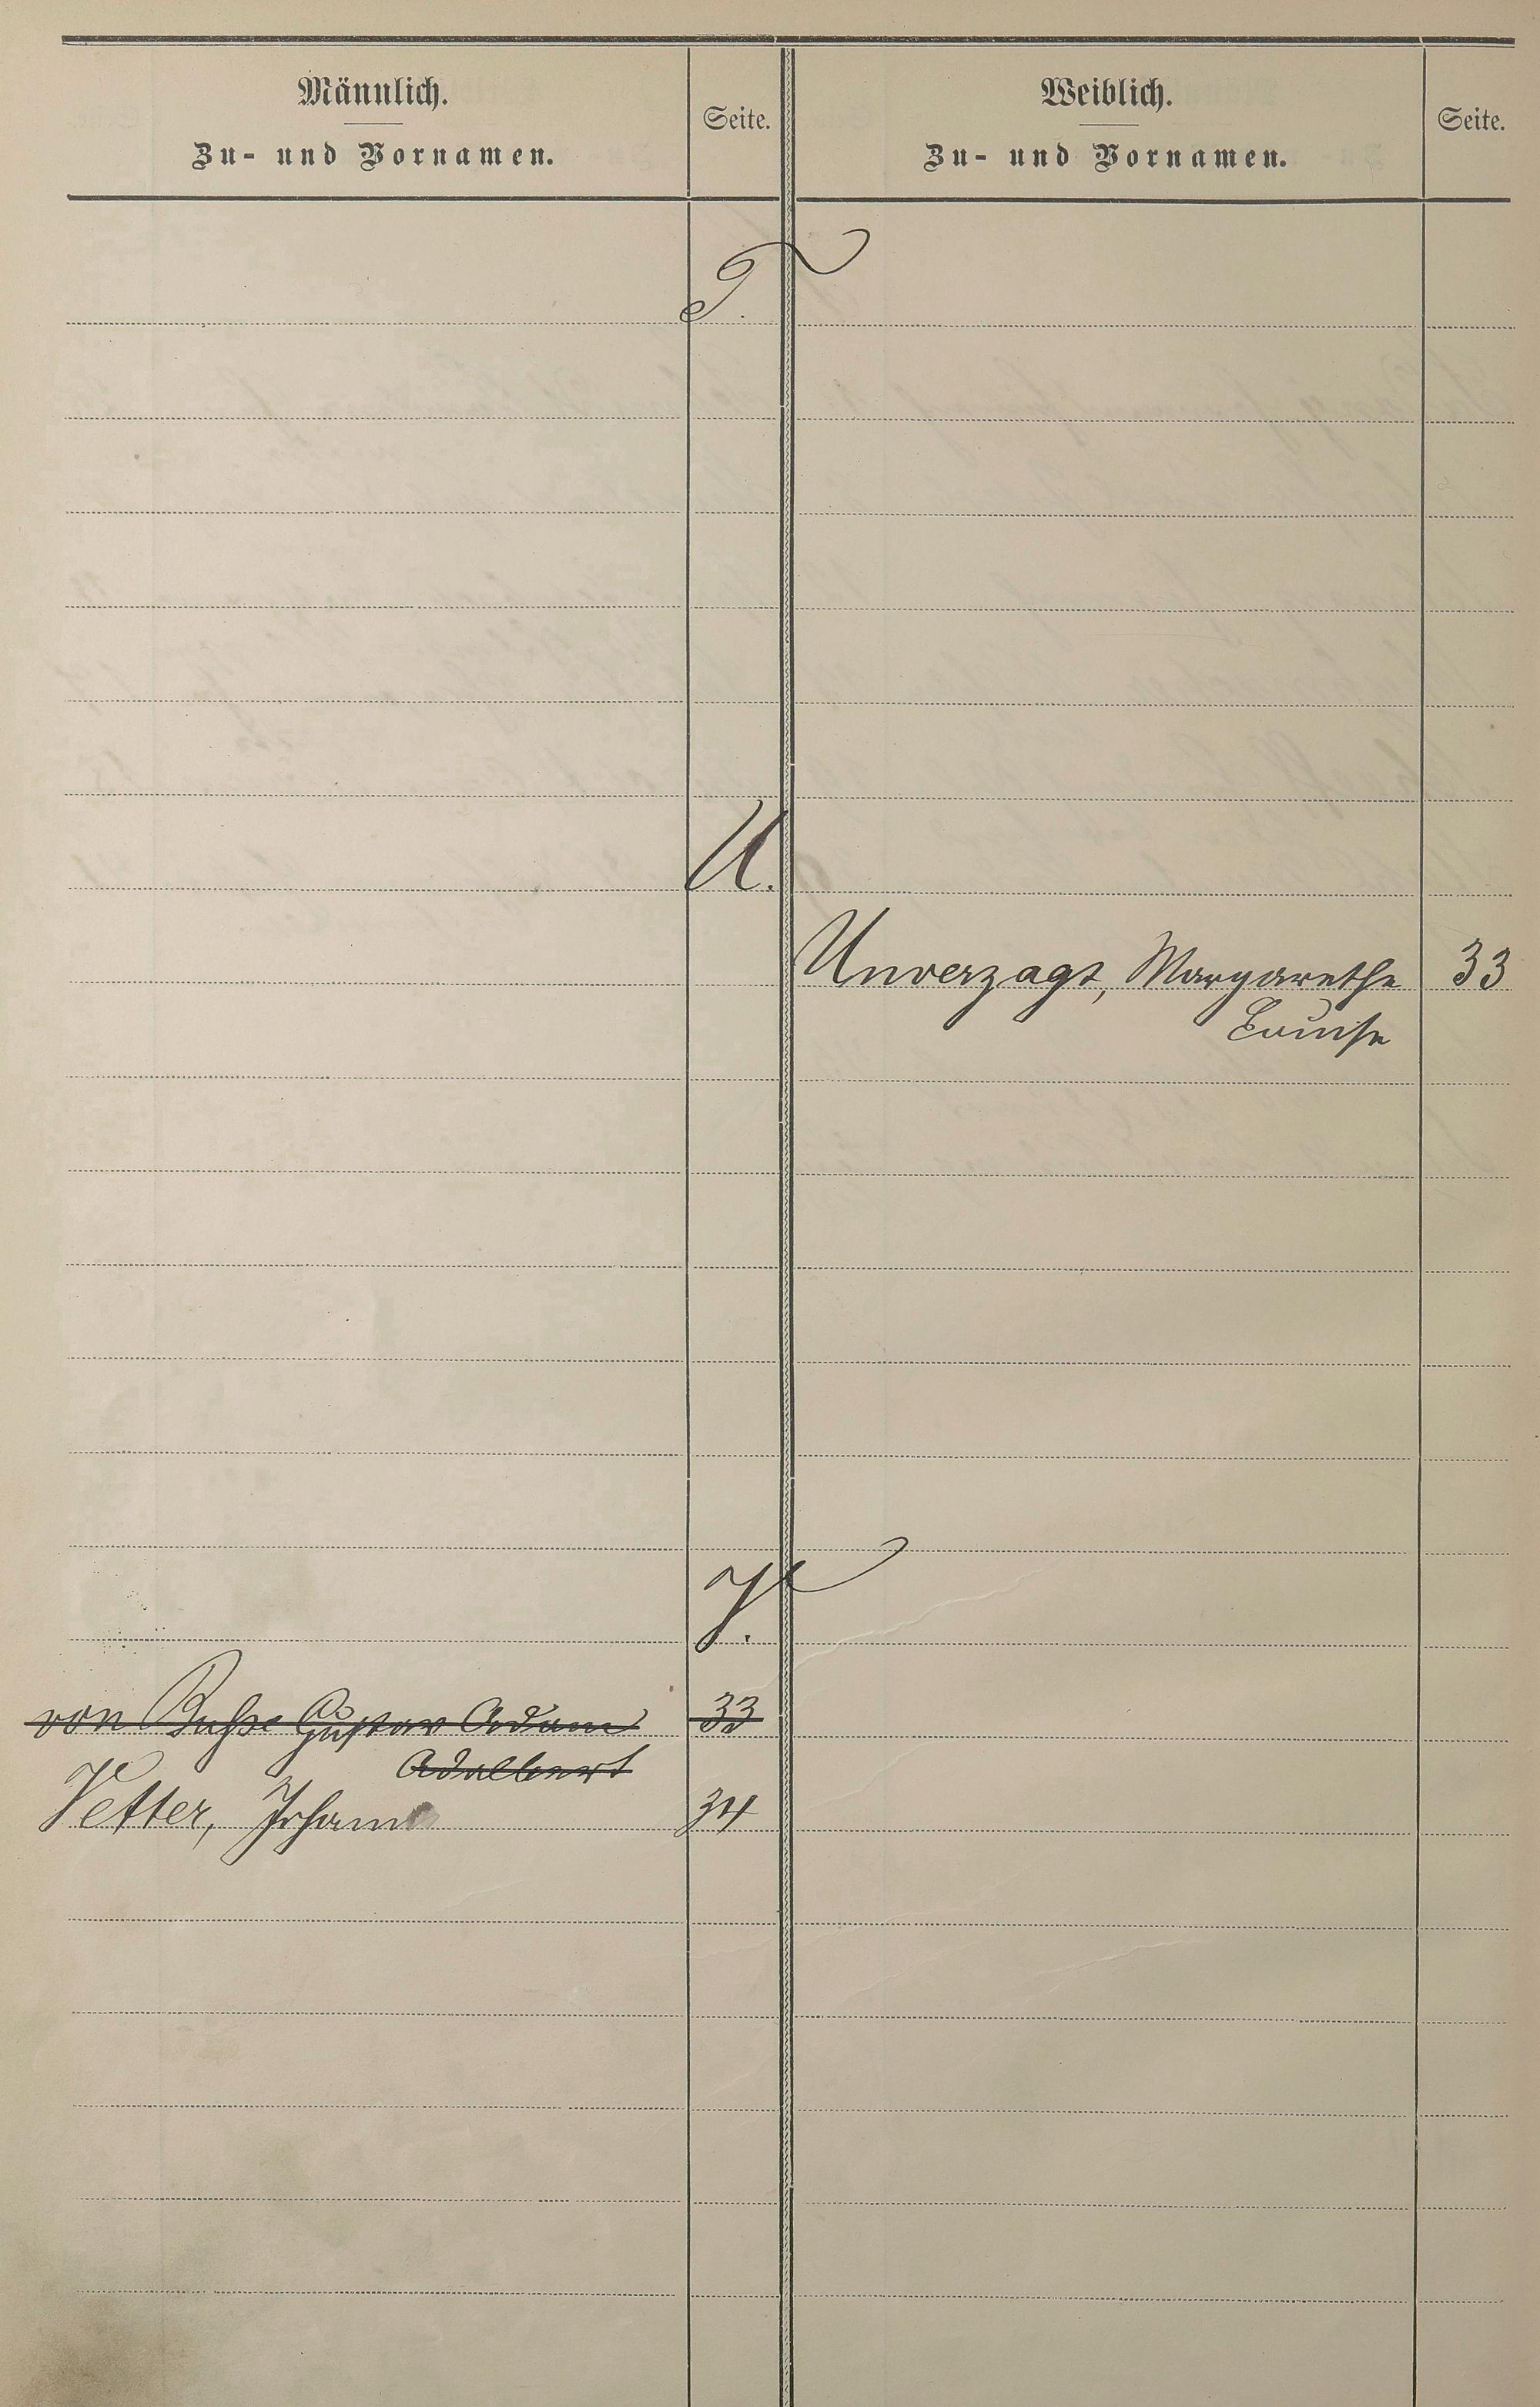 Männlich.
Zu- und Vornamen.
Seite.
Weiblich.
Zu- und Vornamen.
Seite.
T.
U.
Unverzagt, Margarethe 33
Louise
V.
von Busse Gustav Adam 33
Adalbert
Vetter, Johann 34